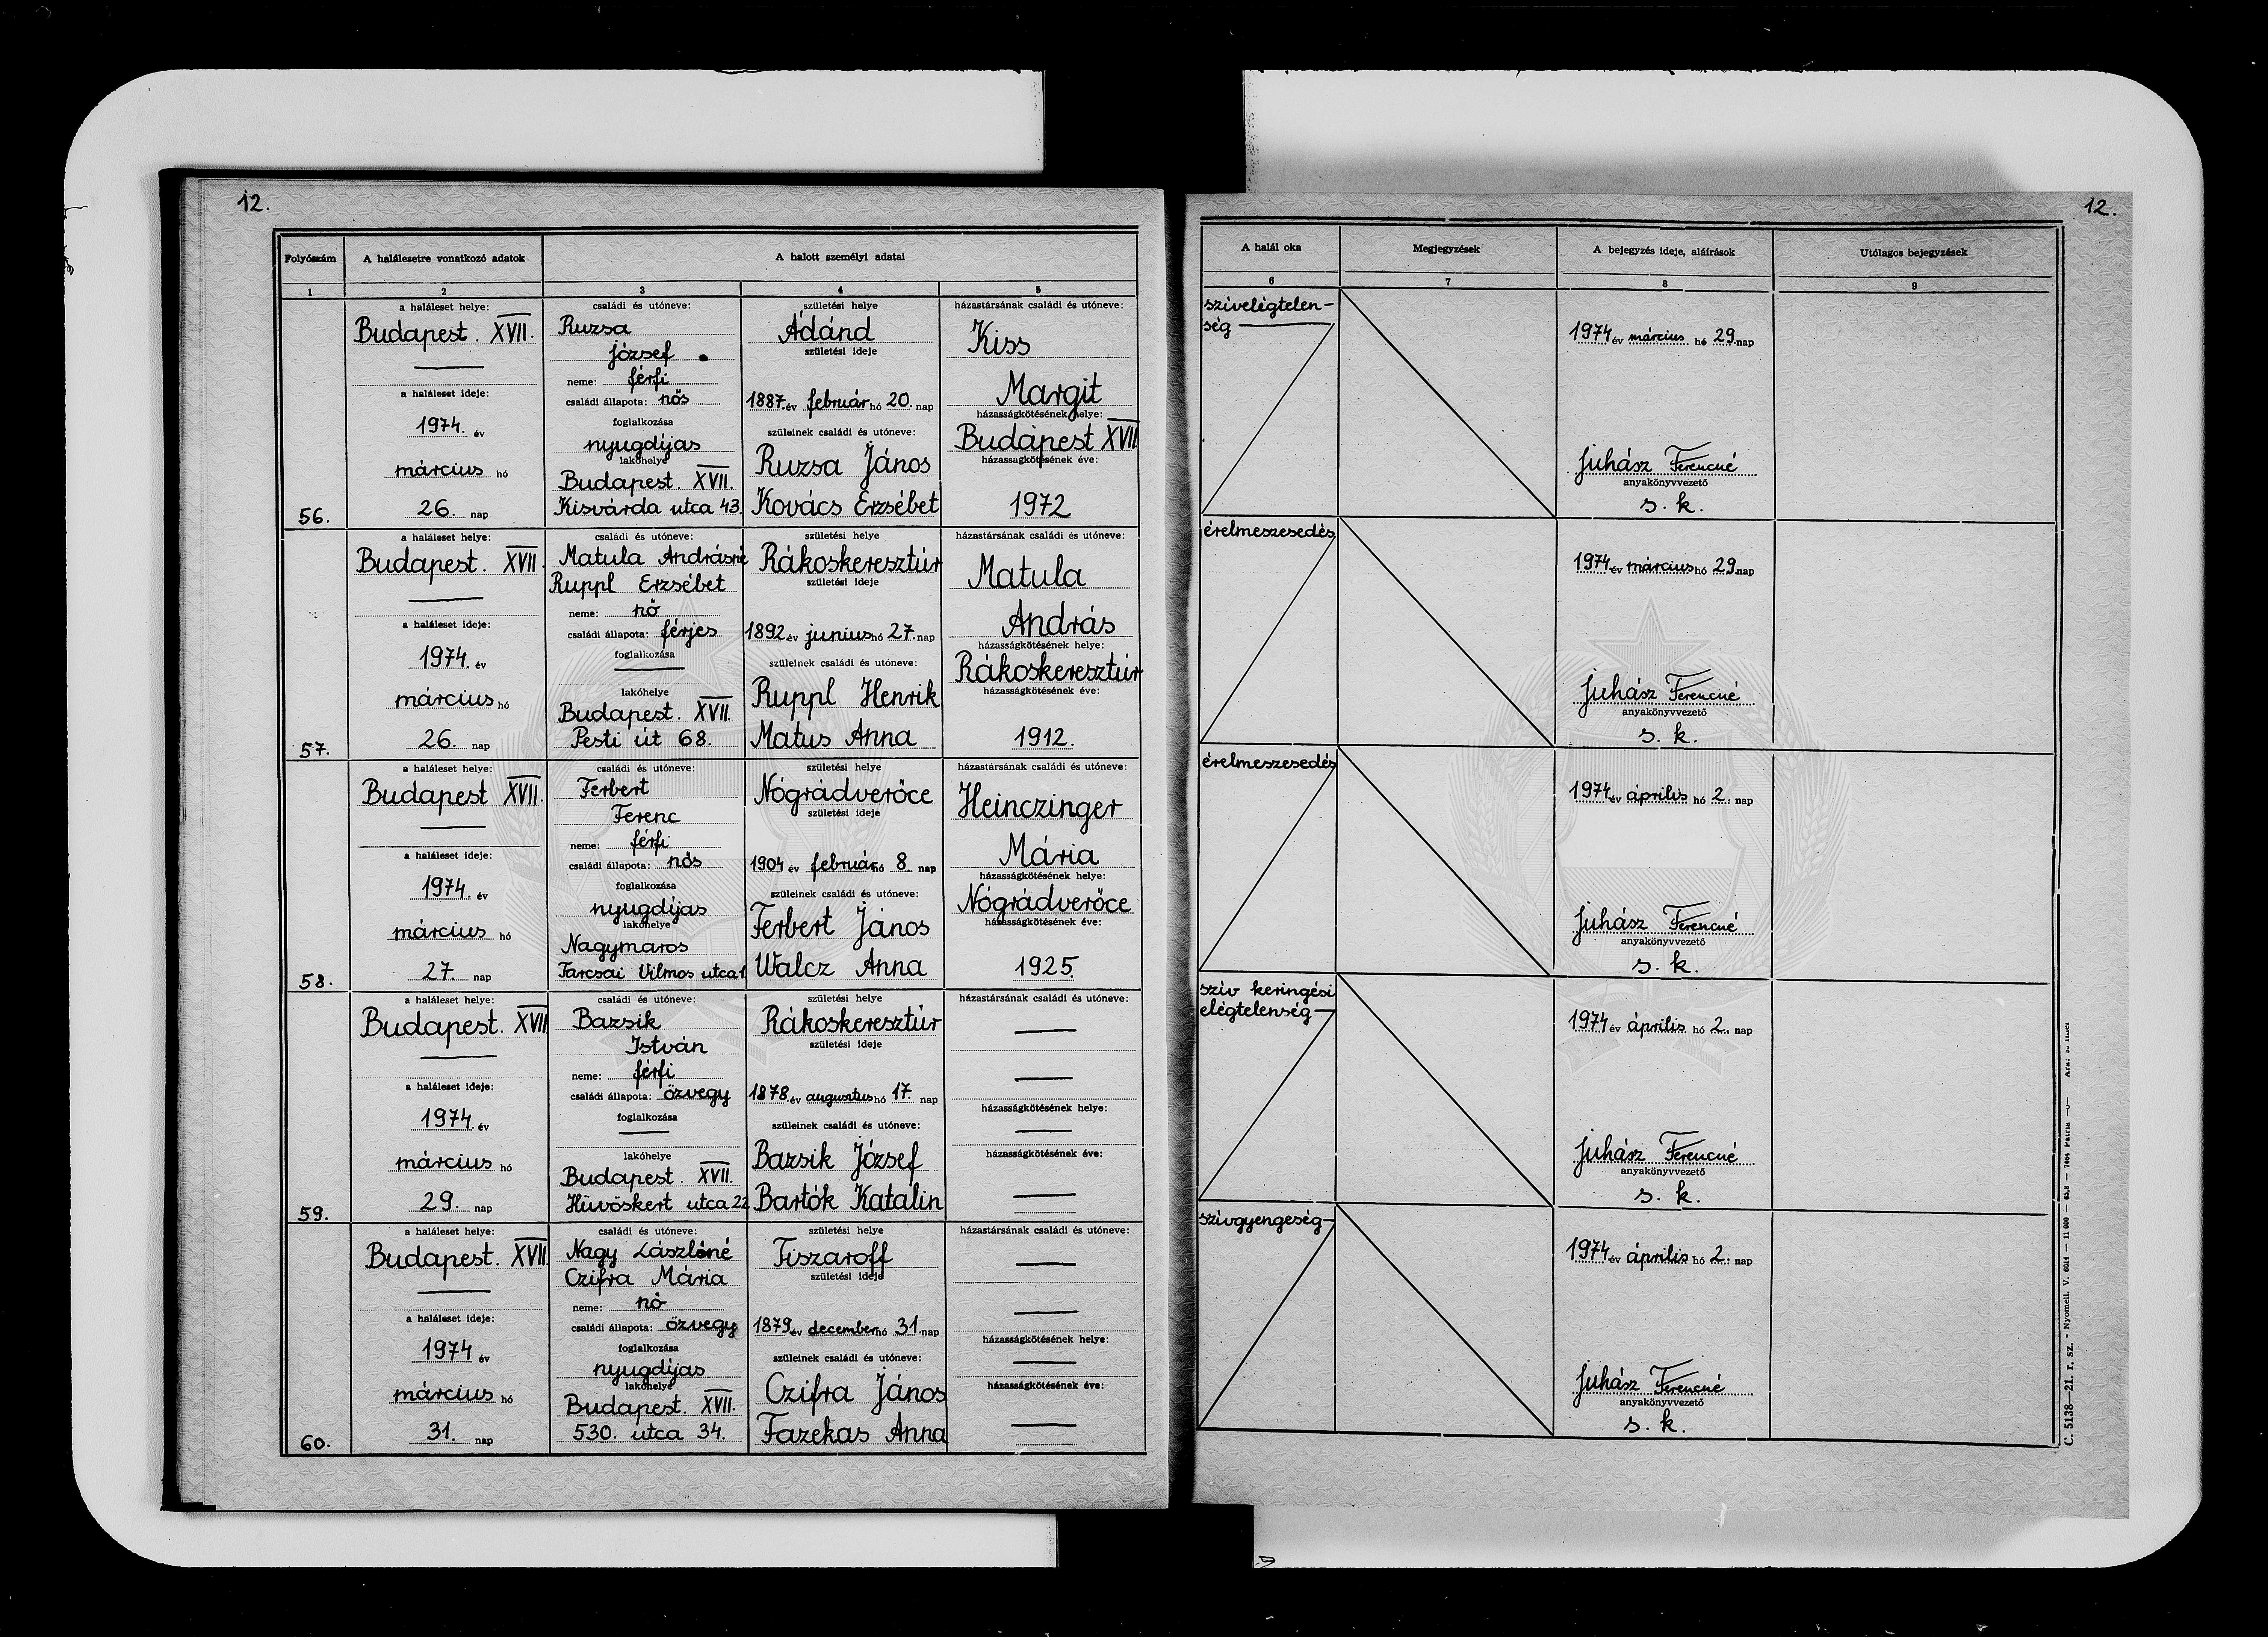 12.
Folyószám
A halálesetre vonatkozó adatok
A halott személyi adatai
1
2
3
4
5
a haláleset helye:
Budapest. XVII.
a haláleset ideje:
1974. év
március hó
56.
26. nap
családi és utóneve:
Ruzsa
József
neme: férfi
családi állapota: nős
foglalkozása
nyugdíjas
lakóhelye
Budapest. XVII.
Kisvárda utca 43.
születési helye
Ádánd
születési ideje
1887. év február hó 20. nap
szüleinek családi és utóneve:
Ruzsa János
Kovács Erzsébet
házastársának családi és utóneve:
Kiss
Margit
házasságkötésének helye:
Budapest XVII
házasságkötésének éve:
1972
a haláleset helye:
Budapest. XVII.
a haláleset ideje:
1974. év
március hó
57.
26. nap
családi és utóneve:
Matula Andrásné
Ruppl Erzsébet
neme: nő
családi állapota: férjes
foglalkozása
lakóhelye
Budapest. XVII.
Pesti út 68.
születési helye
Rákoskeresztúr
születési ideje
1892. év junius hó 27. nap
szüleinek családi és utóneve:
Ruppl Henrik
Matus Anna
házastársának családi és utóneve:
Matula
András
házasságkötésének helye:
Rákoskeresztúr
házasságkötésének éve:
1912.
a haláleset helye:
Budapest XVII.
a haláleset ideje:
1974. év
március hó
58.
27. nap
családi és utóneve:
Ferbert
Ferenc
neme: férfi
családi állapota: nős
foglalkozása
nyugdíjas
lakóhelye
Nagymaros
Tarcsai Vilmos utca 1
születési helye
Nógrádverőce
születési ideje
1904 év február hó 8. nap
szüleinek családi és utóneve:
Ferbert János
Walcz Anna
házastársának családi és utóneve:
Heinczinger
Mária
házasságkötésének helye:
Nógrádverőce
házasságkötésének éve:
1925
a haláleset helye:
Budapest. XVII
a haláleset ideje:
1974. év
március hó
59.
29. nap
családi és utóneve:
Bazsik
István
neme: férfi
családi állapota: özvegy
foglalkozása
lakóhelye
Budapest. XVII.
Hüvöskert utca 22
születési helye
Rákoskeresztúr
születési ideje
1878. év augusztus hó 17. nap
szüleinek családi és utóneve:
Bazsik József
Bartók Katalin
házastársának családi és utóneve:
házasságkötésének helye:
házasságkötésének éve:
a haláleset helye:
Budapest. XVII.
a haláleset ideje:
1974 év
március hó
60.
31. nap
családi és utóneve:
Nagy Lászlóné
Czifra Mária
neme: nő
családi állapota: özvegy
foglalkozása
nyugdíjas
lakóhelye
Budapest. XVII.
530. utca 34.
születési helye
Tiszaroff
születési ideje
1879. év december hó 31. nap
szüleinek családi és utóneve:
Czifra János
Fazekas Anna
házastársának családi és utóneve:
házasságkötésének helye:
házasságkötésének éve:
12.
A halál oka
Megjegyzések
A bejegyzés ideje, aláírások
Utólagos bejegyzések
6
7
8
9
szívelégtelen-
ség
1974 év március hó 29. nap
Juhász Ferencné
anyakönyvvezető
s. k.
érelmeszesedés
1974 év március hó 29. nap
Juhász Ferencné
anyakönyvvezető
s. k.
érelmeszesedés
1974 év április hó 2. nap
Juhász Ferencné
anyakönyvvezető
s. k.
szív keringési
elégtelenség
1974 év április hó 2. nap
Juhász Ferencné
anyakönyvvezető
s. k.
szívgyengeség
1974 év április hó 2. nap
Juhász Ferencné
anyakönyvvezető
s. k.
C. 5138—21. r. sz. - Nyomell. V.